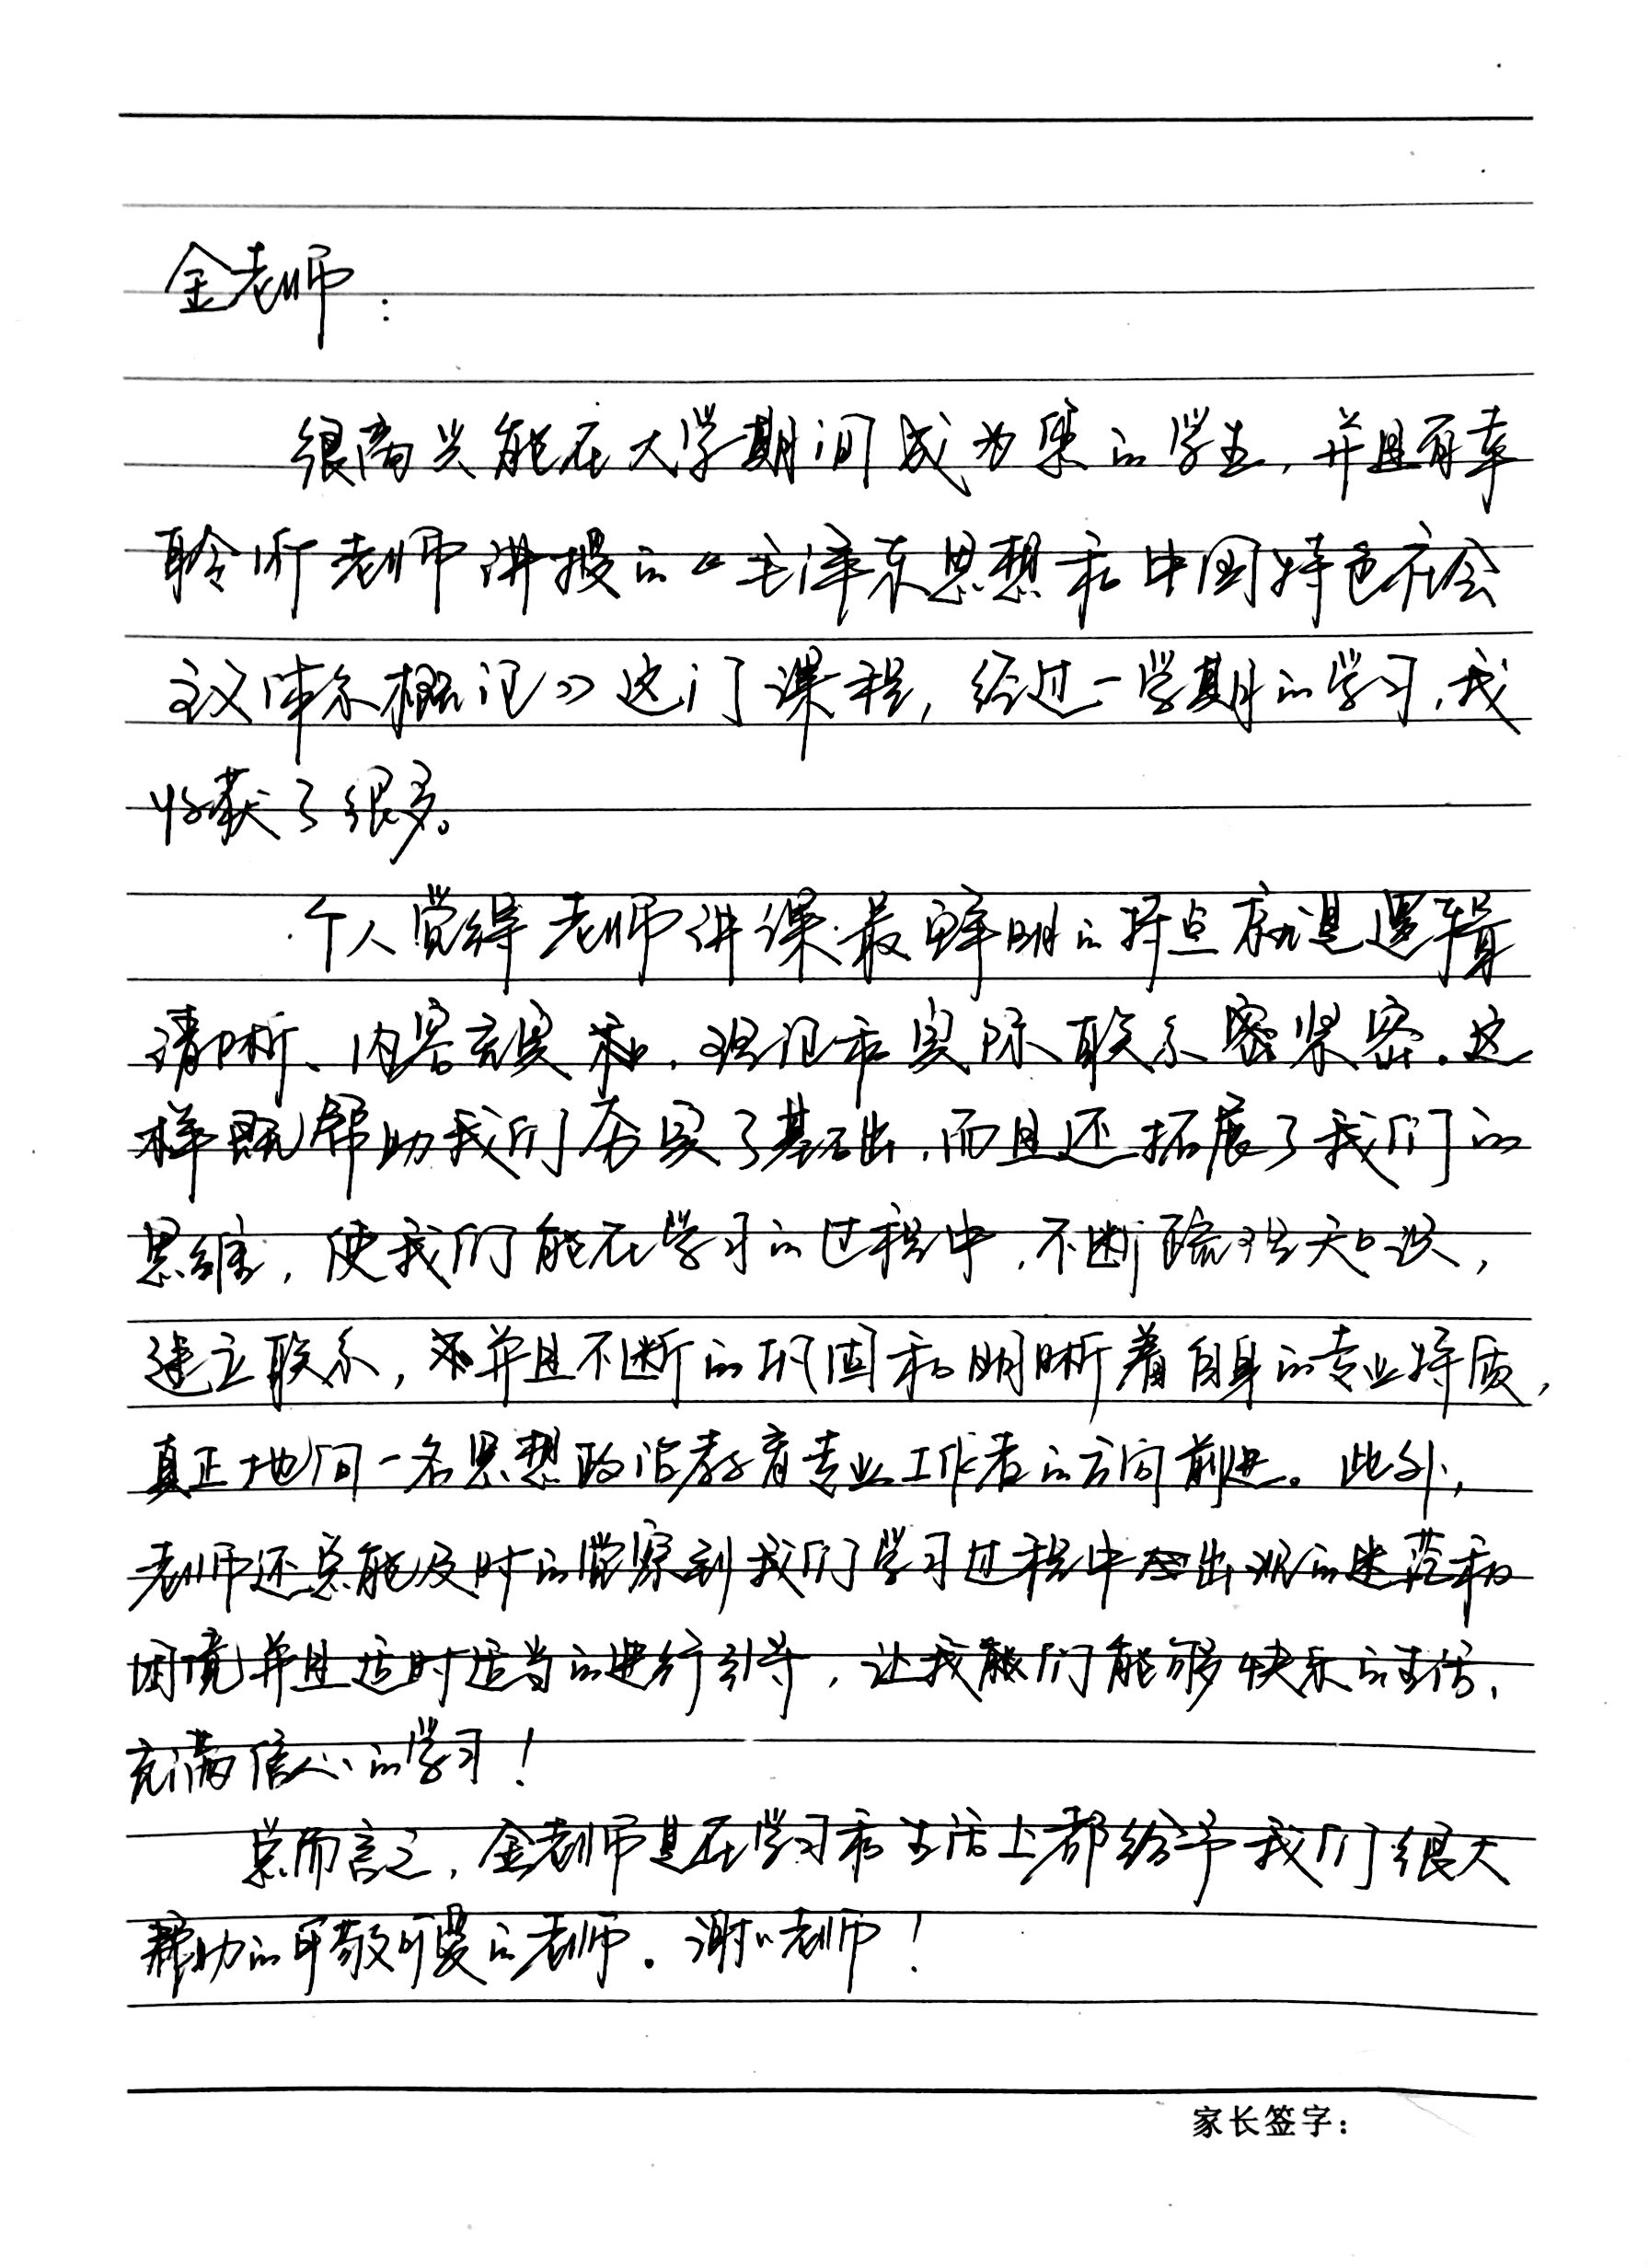 金老师：
很高兴能在大学期间成为您的学生，并且有幸
聆听老师讲授的《毛泽东思想和中国特色社会
主义体系概论》这门课程，经过一学期的学习，我
收获了很多。
个人觉得老师讲课最鲜明的特点就是逻辑
清晰、内容充实，理论和实际联系紧密。这
样既帮助我们夯实了基础，而且还拓展了我们的
思维，使我们能在学习的过程中，不断疏理知识，
建立联系，并且不断的巩固和明晰着自身的专业特质，
真正地向一名思想政治教育专业工作者的方向前进。此外，
老师还总能及时的觉察到我们学习过程中出现的迷茫和
困境并且适时适当的进行引导，让我们能够快乐的生活、
充满信心的学习！
总而言之，金老师是在学习和生活上都给予我们很大
帮助的可敬可爱的老师。谢谢老师！
家长签字：